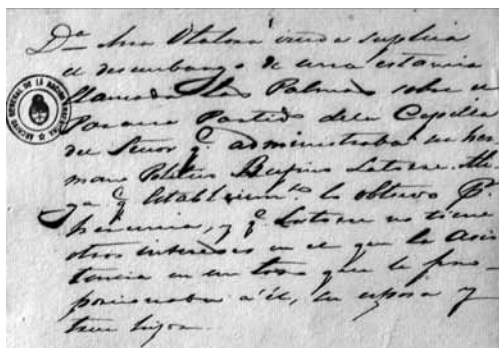 Dª Ana Otalora viuda suplica
el desembargo de una estancia
llamada Las Palmas sobre el
Parana Partido dela Capilla
del Señor q.e administraba su her
mano Politico Rufino Latorre. Ale
ga q.e establecim.to lo obtuvo p.r
herencia, y q.e Latorre no tiene
otros intereses en el que la asis
tencia en un todo que le pro
porcionaba a él, su esposa y
tres hijos.
ARCHIVO GENERAL DE LA NACION